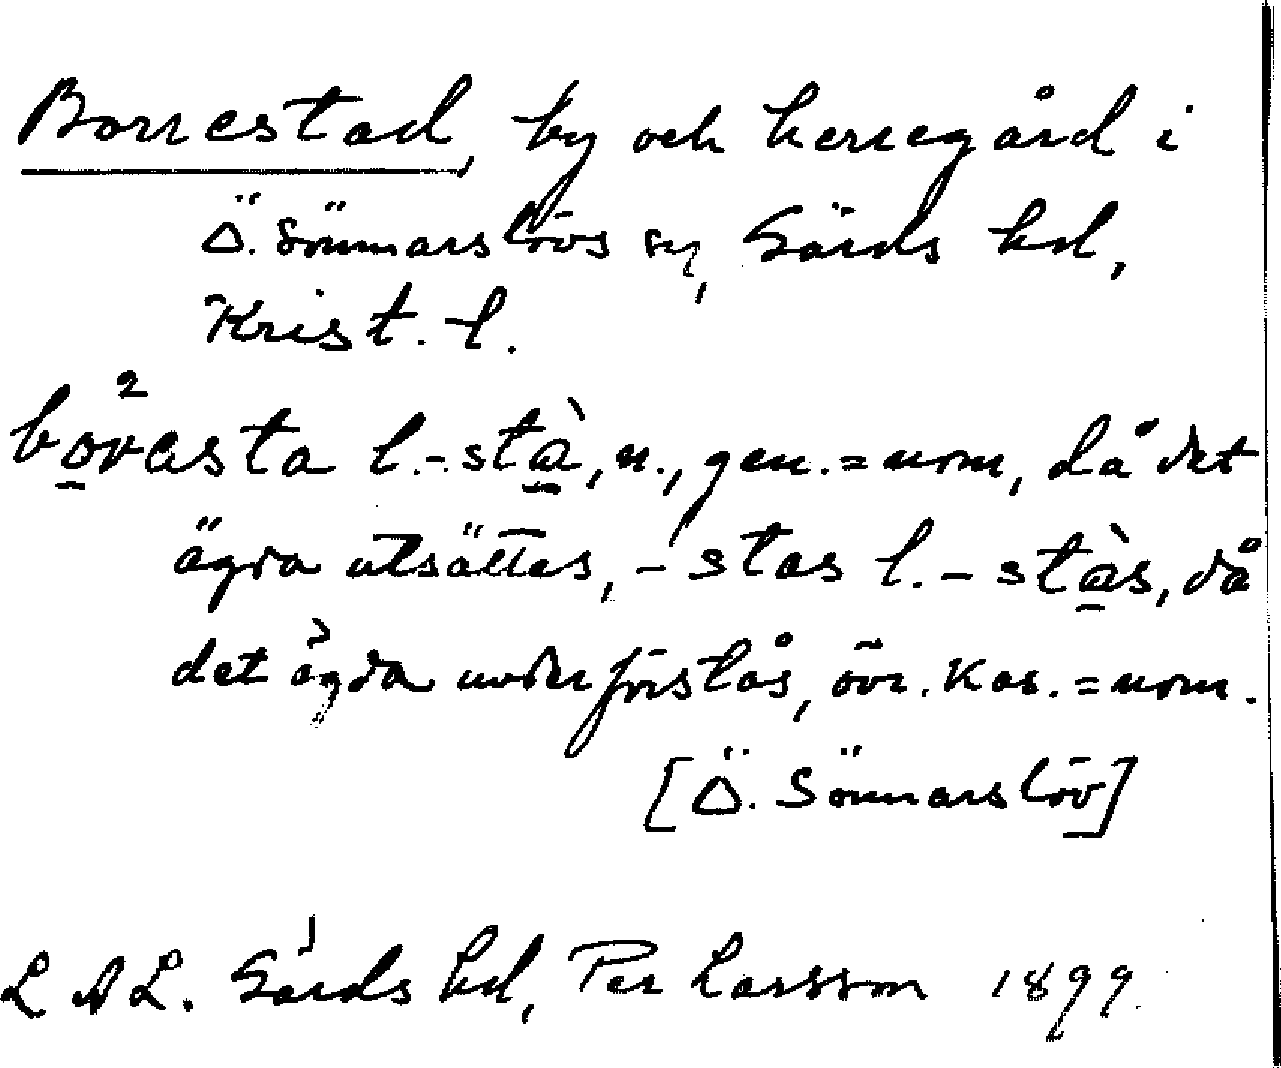 Borrestad, by och herregård i
Ö. Sönnarslövs sn, Gärds hd,
Krist. l.
bo²rasta l. -stà, n., gen. = nom, då det
ägda utsättes, -stas l. -stàs, då
det ägda underförstås, övr. kas. = nom.
[Ö. Sönnarslöv]
LAL. Gärds hd, Per Larsson 1899.